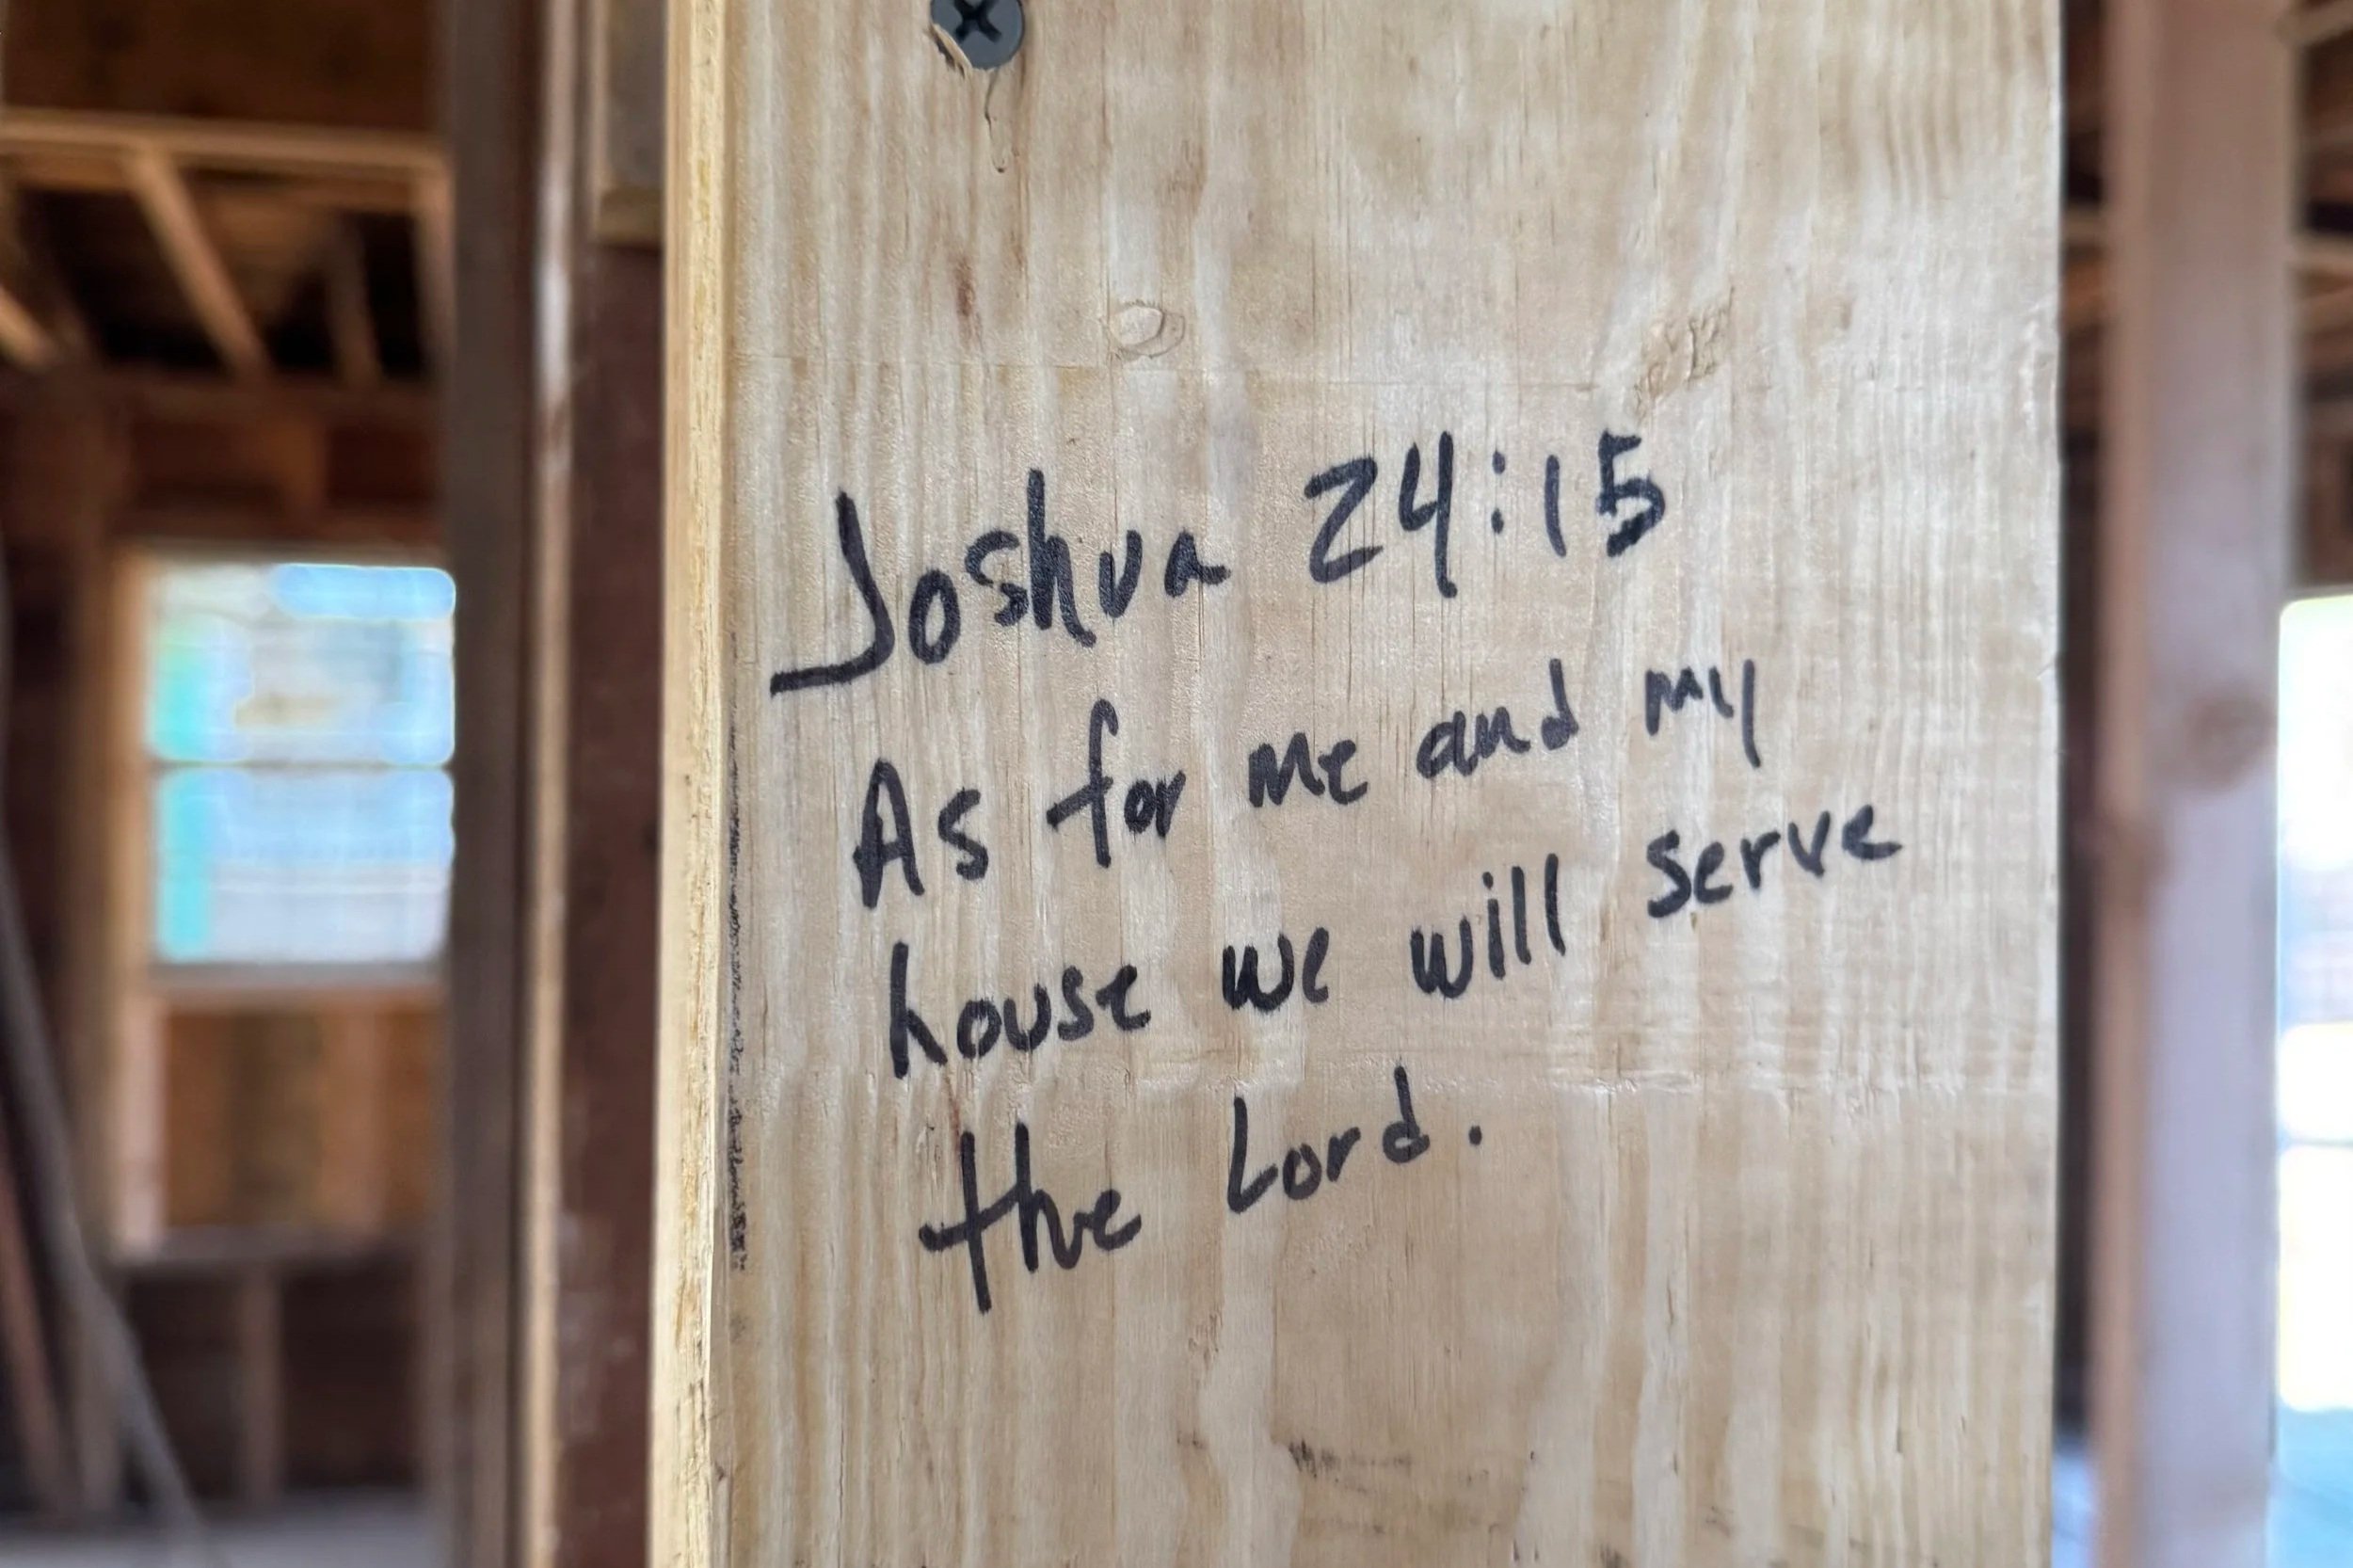 Joshua 24:15
As for me and my
house we will serve
the Lord.